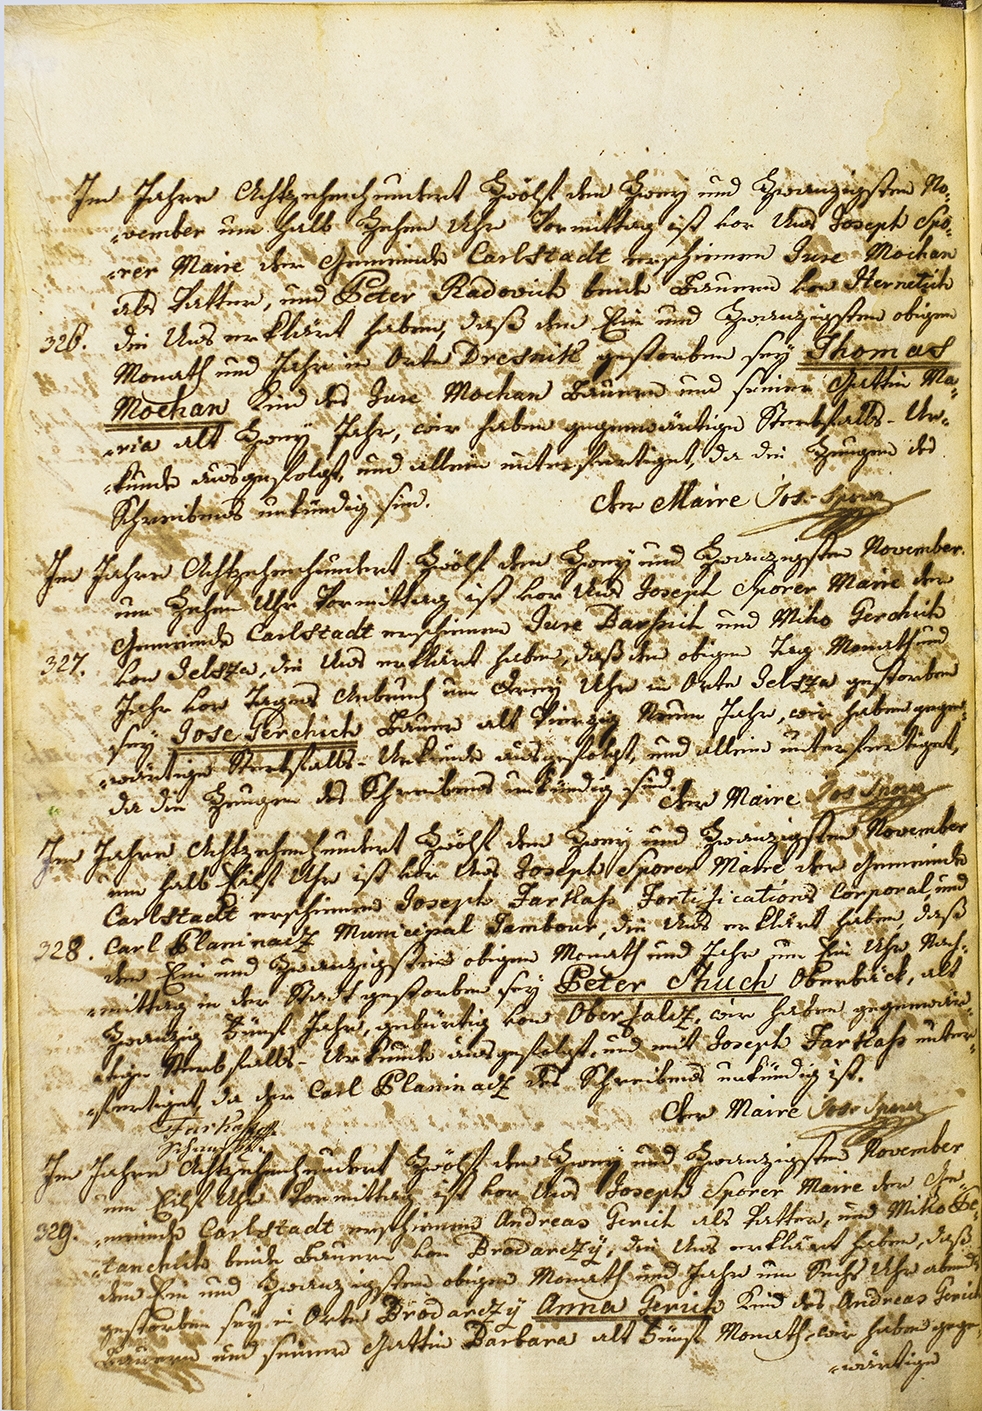 Im Jahre Achtzehenhundert Zwölf den Zwey und Zwanzigsten No-
-vember um halb Zehen Uhr Vormittag ist vor Uns Joseph Spo-
-rer Maire der Gemeinde Carlstadt erschienen Jure Mochan
als Vatter, und Peter Radovich beide Bauern von
die Uns erklärt haben, daß den Ein und Zwanzigsten obigen
326.
Monath und Jahr in Orte Dresnik gestorben sey Thomas
Mochan Kind des Jure Mochan Bauern und seiner Gattin Ma-
-ria alt Zwey Jahr, wir haben gegenwärtige Sterbfalls-Ur-
-kunde ausgefolgt, und allein unterfertiget, da die Zeugen des
Schreibens unkündig sind.
Der Maire Jos. Sporer
Im Jahre Achtzehenhundert Zwölf den Zwey und Zwanzigsten November
um Zehen Uhr Vormittag ist vor Uns Joseph Sporer Maire der
Gemeinde Carlstadt erschienen Jure und Miko Gerchich
327.
von Jelsza, die Uns erklärt haben, daß den obigen Tag Monath und
Jahr vor Tages Anbruch um Drey Uhr in Orte Jelsza gestorben
sey Jose Gerchich Bauer alt Vierzig Neun Jahr, wir haben gegen-
-wärtige Sterbfalls-Urkunde ausgefolgt, und allein unterfertiget,
da die Zeugen des Schreibens unkündig sind.
Der Maire Jos Sporer
Im Jahre Achtzehenhundert Zwölf den Zwey und Zwanzigsten November
um halb Eilf Uhr ist vor Uns Joseph Sporer Maire der Gemeinde
Carlstadt erschienen Joseph Farkass Fortifications Corporal und
328.
Carl Planinacz Municipal Tambour, die Uns erklärt haben, daß
den Ein und Zwanzigsten obigen Monath und Jahr um Ein Uhr Nach-
-mittag in der Stadt gestorben sey Peter Oberbäck, alt
Zwanzig Fünf Jahr, gebürtig von wir haben gegenwär-
-tige Sterbfalls-Urkunde ausgefolgt, und mit Joseph Farkass unter-
-fertiget, da der Carl Planinacz des Schreibens unkündig ist.
Der Maire Jos. Sporer
Farkass
Im Jahre Achtzehenhundert Zwölf den Zwey und Zwanzigsten November
um Eilf Uhr Vormittag ist vor Uns Joseph Sporer Maire der Ge-
329.
-meinde Carlstadt erschienen Andreas Gerich als Vatter, und Miko
beide Bauern von Brodarczy, die Uns erklärt haben, daß
den Ein und Zwanzigsten obigen Monath und Jahr um Sechs Uhr abends
gestorben sey in Orte Brodarczy Anna Gerich Kind des Andreas Gerich
Bauern und seiner Gattin Barbara alt Fünf Monath, wir haben gege-
-wärtige